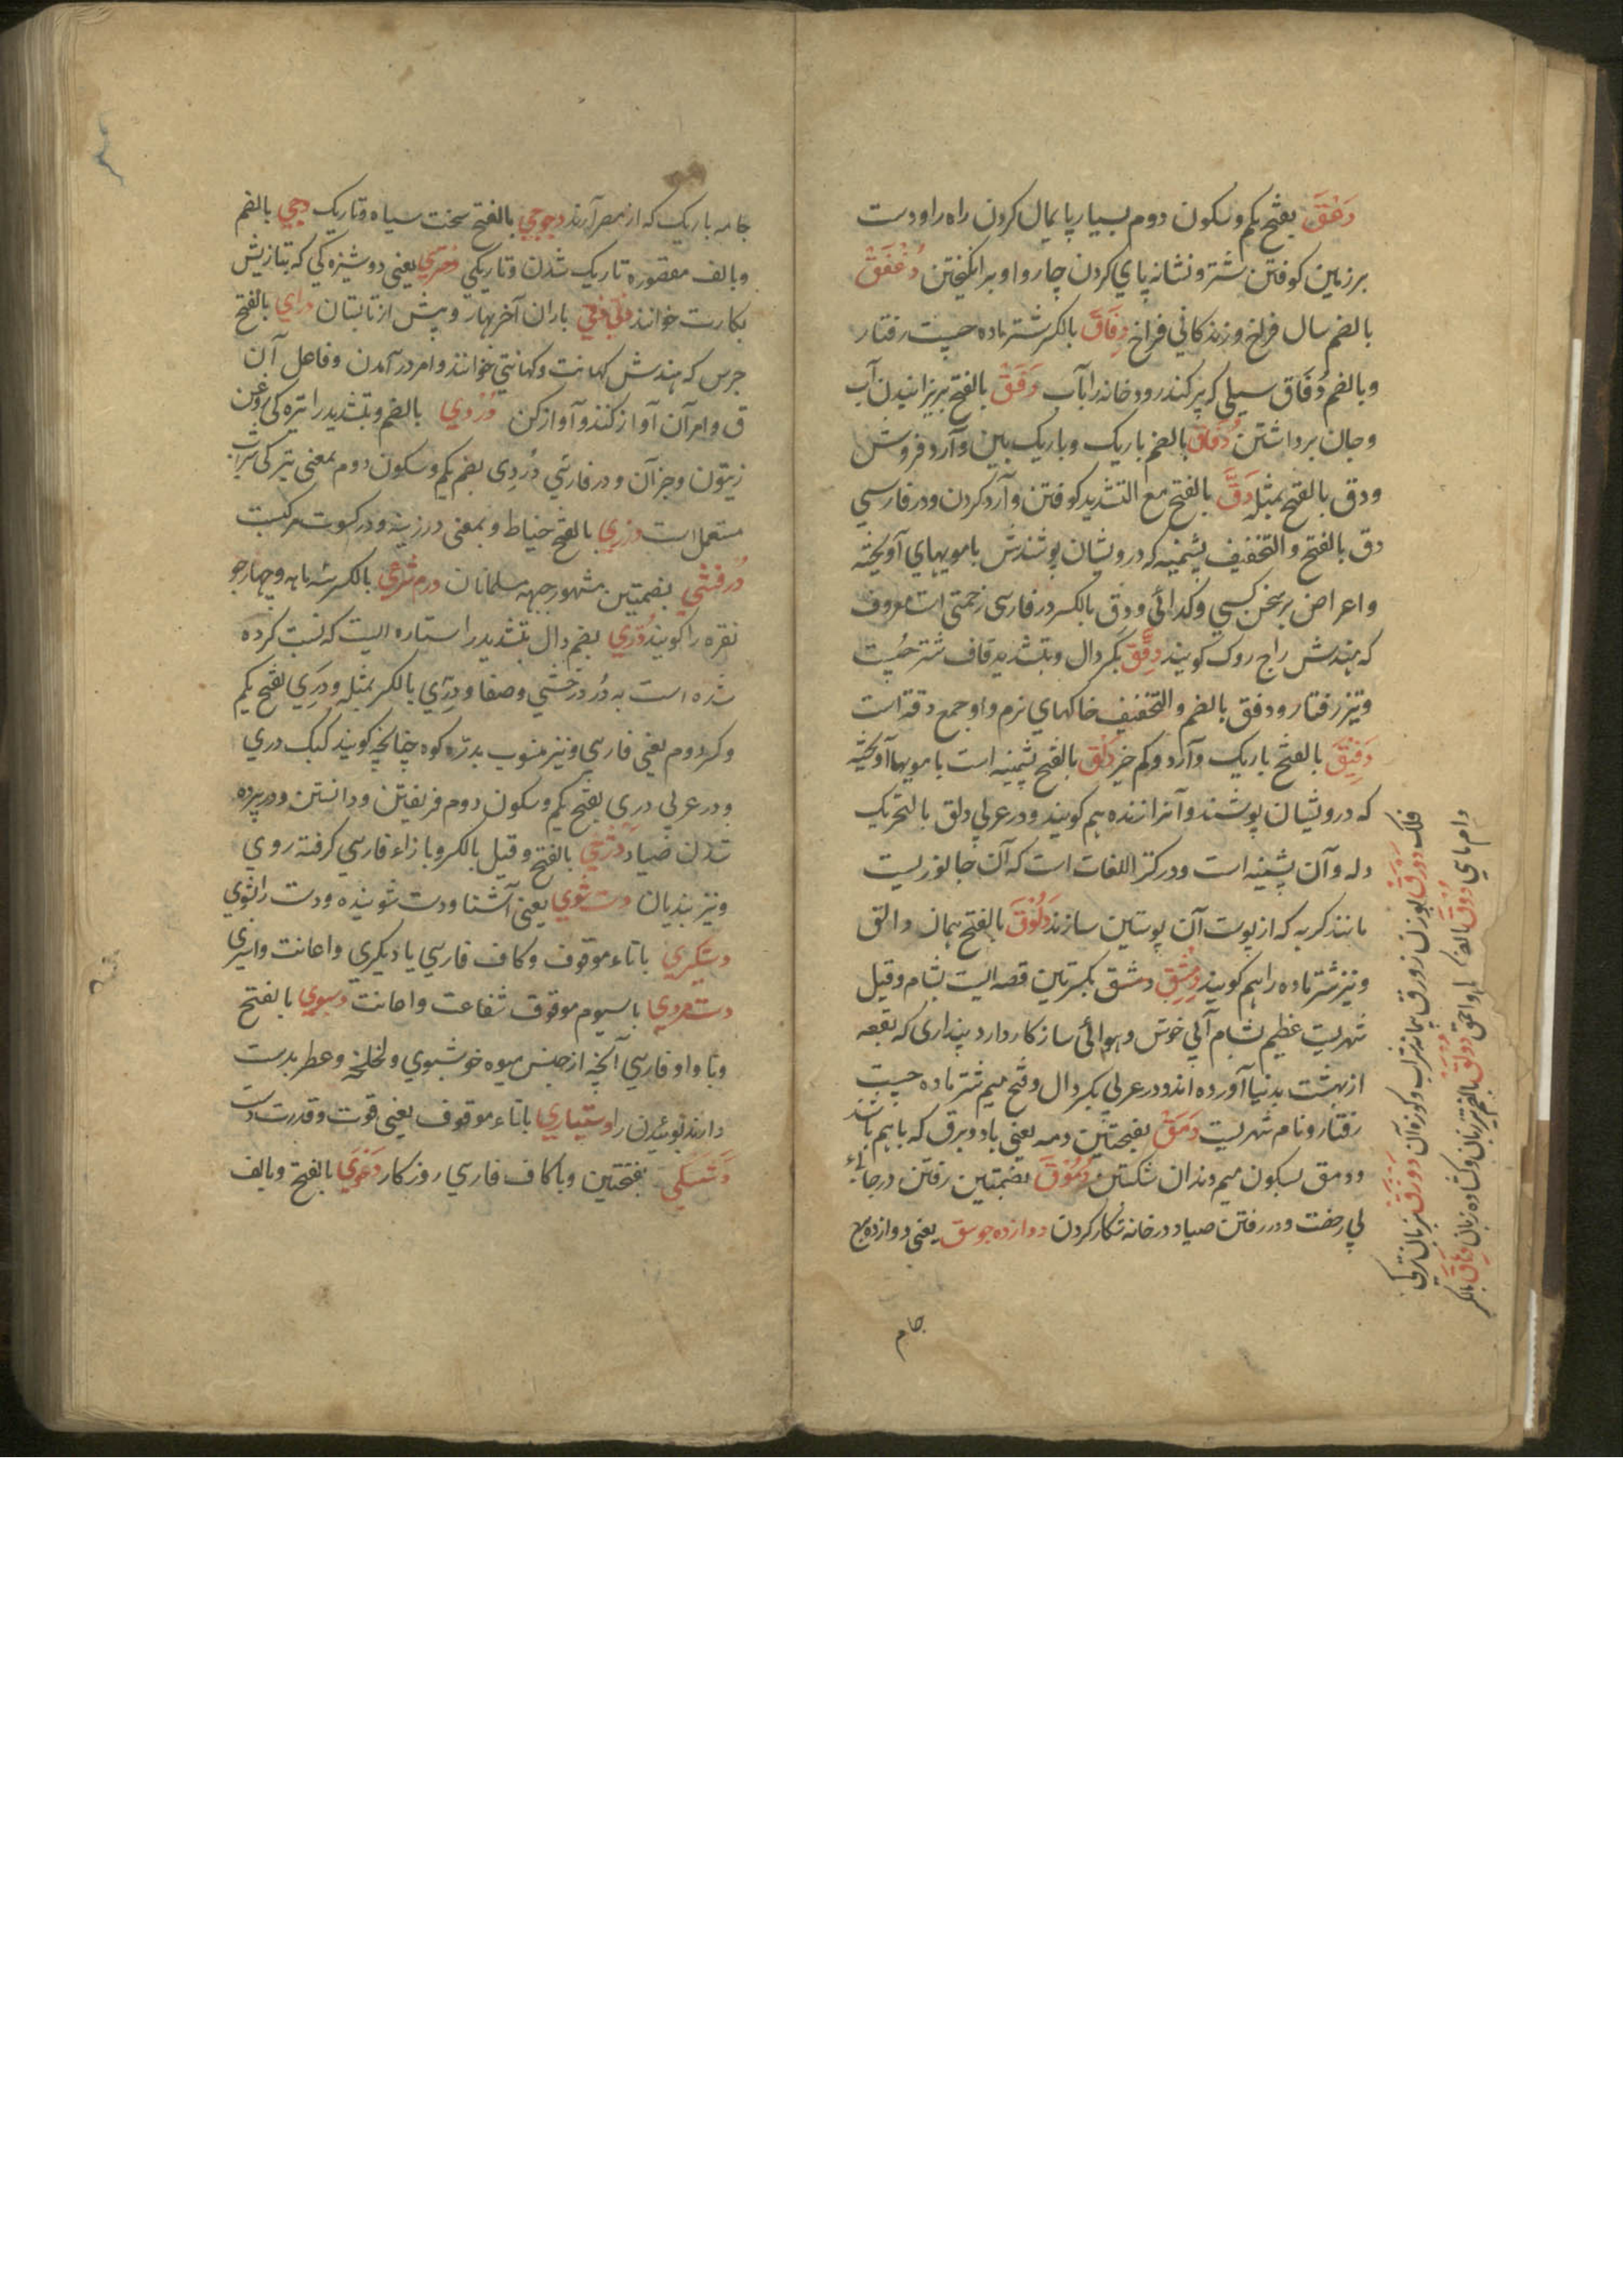 دَعَقْ بفتح یکم و سکون دوم بسیار پایمال کردن راه را و دست
بر زمین کوفتن شتر و نشانه پای کردن چاروا و برانگیختن دُغْفَقْ
بالضم سال فراخ و زندگانی فراخ دِفَاقْ بالکسر شتر ماده چست رفتار
و بالضم دُفَاق سیلی که پر کند رودخانه را بآب دَفَقْ بالفتح بریزانیدن آب
و جان برداشتن دُقَاقْ بالضم باریک و باریک بین و آرد فروش
ودق بالفتح بمثله دَقّ بالفتح مع التشدید کوفتن و آرد کردن و در فارسی
دق بالفتح والتخفیف پشمینه که درویشان پوشندش با مویهای آویخته
و اعراض بر سخن کسی و گدائی و دق بالکسر در فارسی زحمتی است معروف
که بهندش راج روک گویند دِفَّقْ بکسر دال و بتشدید قاف شتر چست
و تیز رفتار و دقق بالضم والتخفیف خاکهای نرم و او جمع دقه است
دَقِیْقَ بالفتح باریک و آرد و کم خیر دَلَق بالفتح پشمینه است با مویها آویخته
که درویشان پوشند و آنرا ژنده هم گویند و در عربی دلق بالتحریک
دله و آن پشینه است و در کنز اللغات است که آن جانوریست
مانند گربه که از پوست آن پوستین سازند دَلُوْقَ بالفتح همان دالق
و نیز شتر ماده را هم گویند دِمِشْق دمشق بکسرتین قصه ایست بشام و قیل
شهریست عظیم بشام آبی خوش و هوائی ساز کار دارد پنداری که بقعه
از بهشت بدنیا آورده اند و در عربی بکسر دال و فتح میم شتر ماده چست
رفتار و نام شهریست دَمَقْ بفتحتین دمه یعنی باد و برق که باهم باشد
و دمق بسکون میم دندان شکستن دُمُوْقْ بضمتین رفتن در جائی
بی رخصت و در رفتن صیاد در خانه شکار کردن دوازده جوسق یعنی دوازده برج
فلک دَوْرَق بوزن زورق پیمانه شراب و کوزه آن دورق بزبان ترکی
جام
جامه باریک که از مصر آرند دجوجی بالفتح سخت سیاه و تاریک دجی بالضم
و بالف مقصوره تاریک شدن و تاریکی دختری یعنی دوشیزه گی که بتازیش
بکارت خوانند دفئی باران آخر بهار و پیش از تابستان درای بالفتح
جرس که هندش کهانت و کهانتی خوانند و امر درآمدن و فاعل آن
ق و امر آن آواز کننده و آواز کن دُرْدِی بالضم و بتشدید را تیره گی روغن
زیتون و جز آن و در فارسی دُردِی بضم یکم و سکون دوم بمعنی تیرگی شراب
مستعمل است درزی بالفتح خیاط و بمعنی درزینه و در کسوت مرکبست
دُرفشی بضمتین مشهور جبهه مسلمانان درم شرعی بالکسر سه ماهه و چهار جو
نقره را گویند دُرِّی بضم دال بتشدید را ستاره ایست که نسبت کرده
شده است به دُر درخشی و صفا و دِرِّی بالکسر بمثله و دَرِی بفتح یکم
و کسر دوم یعنی فارسی و نیز منسوب بدرّه کوه چنانچه گویند کبک دری
و در عربی دری بفتح یکم و سکون دوم فریفتن و دانستن و در پرده
شدن صیاد دژی بالفتح و قیل بالکسر و با زاء فارسی گرفته روی
و نیز بندیان دست شوی یعنی آشنا و دست شوینده و دست را شوی
دستگیری با تاء موقوف و کاف فارسی یا دیگری و اعانت و اسیری
دست مردی با سیوم موقوف شفاعت و اعانت دسبوی بالفتح
و با واو فارسی آنچه از جنس میوه خوشبوی و لخلخه و عطر بدست
دارند بوئیدن را دستیاری با تاء موقوف یعنی قوت و قدرت دست
دَشَکِی بفتحتین و با کاف فارسی روز کار دَعْوَی بالفتح و بالف